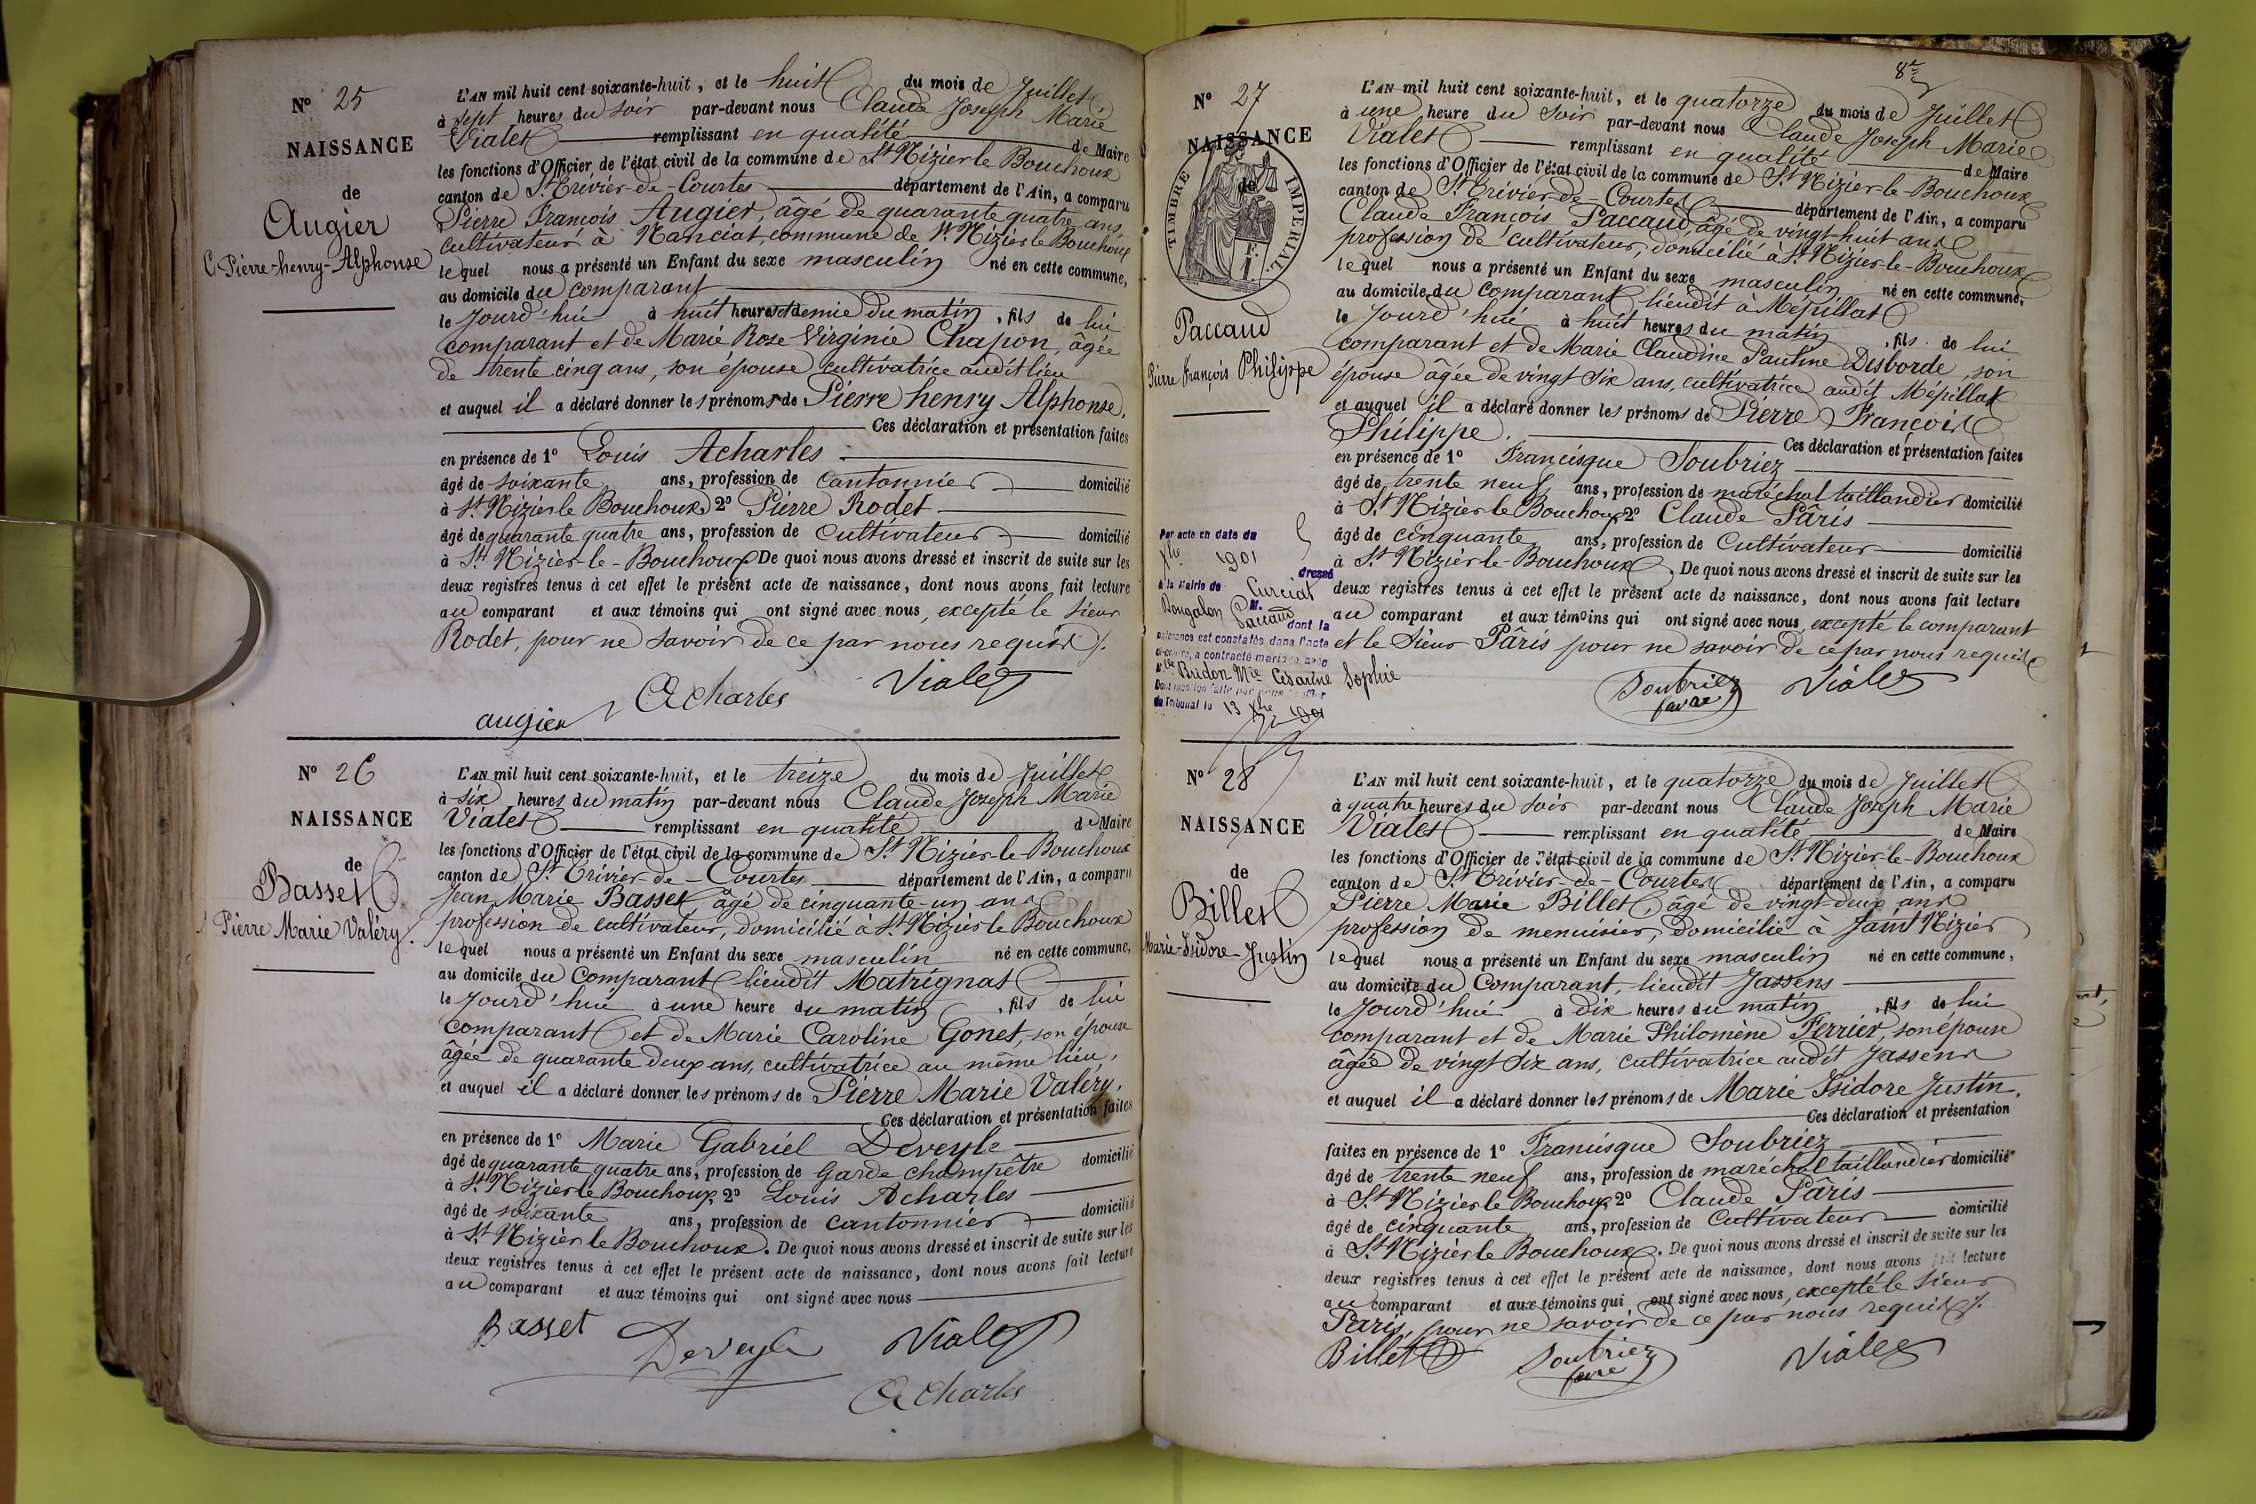 N° 25
NAISSANCE
de
Augier
Pierre-henry-Alphonse
L'AN mil huit cent soixante-huit, et le huit du mois de Juillet,
à sept heures du soir par-devant nous Claude Joseph Marie
Vialet remplissant en qualité de Maire
les fonctions d'Officier de l'état civil de la commune de St Nizier le Bouchoux
canton de St Trivier-de-Courtes département de l'Ain, a comparu
Pierre François Augier, âgé de quarante quatre ans,
cultivateur à Nanciat, commune de St Nizier le Bouchoux
lequel nous a présenté un Enfant du sexe masculin né en cette commune,
au domicile du comparant
le Jourd'hui à huit heures et demie du matin, fils de lui
comparant et de Marie Rose Virginie Chapon, âgée
de trente cinq ans, son épouse cultivatrice audit lieu
et auquel il a déclaré donner les prénoms de Pierre henry Alphonse.
Ces déclaration et présentation faites
en présence de 1° Louis Acharles
âgé de soixante ans, profession de cantonnier domicilié
à St Nizier le Bouchoux 2° Pierre Rodet
âgé de quarante quatre ans, profession de cultivateur domicilié
à St Nizier-le-Bouchoux De quoi nous avons dressé et inscrit de suite sur les
deux registres tenus à cet effet le présent acte de naissance, dont nous avons fait lecture
au comparant et aux témoins qui ont signé avec nous, excepté le sieur
Rodet, pour ne savoir de ce par nous requis /.
Acharles Vialet
augier
N° 26
NAISSANCE
de
Basset
Pierre Marie Valéry.
L'AN mil huit cent soixante-huit, et le treize du mois de Juillet
à six heures du matin par-devant nous Claude Joseph Marie
Vialet remplissant en qualité de Maire
les fonctions d'Officier de l'état civil de la commune de St Nizier-le-Bouchoux
canton de St Trivier-de-Courtes département de l'Ain, a comparu
Jean Marie Basset âgé de cinquante-un ans
profession de cultivateur, domicilié à St Nizier le Bouchoux
lequel nous a présenté un Enfant du sexe masculin né en cette commune,
au domicile du Comparant lieudit Matrignat
le Jourd'hui à une heure du matin, fils de lui
comparant et de Marie Caroline Gonet, son épouse
âgée de quarante deux ans, cultivatrice au même lieu,
et auquel il a déclaré donner les prénoms de Pierre Marie Valéry.
Ces déclaration et présentation faites
en présence de 1° Marie Gabriel Deveyle
âgé de quarante quatre ans, profession de Garde champêtre domicilié
à St Nizier le Bouchoux 2° Louis Acharles
âgé de soixante ans, profession de cantonnier domicilié
à St Nizier le Bouchoux. De quoi nous avons dressé et inscrit de suite sur les
deux registres tenus à cet effet le présent acte de naissance, dont nous avons fait lecture
au comparant et aux témoins qui ont signé avec nous
Basset Deveyle Vialet
Acharles
8e
N° 27
NAISSANCE
de
TIMBRE IMPÉRIAL
Paccaud
Pierre François Philippe
Par acte en date du
Xbre 1901
dressé
à la Mairie de Curciat
Dongalon M. Paccaud
dont la
naissance est constatée dans l'acte
ci-contre, a contracté mariage avec
Mlle Bridon Mie Césarine Sophie
Dont mention faite par nous greffier
du Tribunal le 13 Xbre 1901
L'AN mil huit cent soixante-huit, et le quatorze du mois de Juillet
à une heure du soir par-devant nous Claude Joseph Marie
Vialet remplissant en qualité de Maire
les fonctions d'Officier de l'état civil de la commune de St Nizier-le-Bouchoux
canton de St Trivier-de-Courtes département de l'Ain, a comparu
Claude François Paccaud, âgé de vingt-huit ans
profession de cultivateur, domicilié à St Nizier-le-Bouchoux
lequel nous a présenté un Enfant du sexe masculin né en cette commune,
au domicile du comparant lieudit à Mépillat
le Jourd'hui à huit heures du matin, fils de lui
comparant et de Marie Claudine Pauline Desborde, son
épouse âgée de vingt six ans, cultivatrice audit Mépillat
et auquel il a déclaré donner les prénoms de Pierre François
Philippe.
Ces déclaration et présentation faites
en présence de 1° Francisque Soubriez
âgé de trente neuf ans, profession de maréchal taillandier domicilié
à St Nizier le Bouchoux 2° Claude Pâris
âgé de cinquante ans, profession de Cultivateur domicilié
à St Nizier-le-Bouchoux. De quoi nous avons dressé et inscrit de suite sur les
deux registres tenus à cet effet le présent acte de naissance, dont nous avons fait lecture
au comparant et aux témoins qui ont signé avec nous, excepté le comparant
et le sieur Pâris pour ne savoir de ce par nous requis
Soubriez Vialet
favre
N° 28
NAISSANCE
de
Billet
Marie-Isidore-Justin
L'AN mil huit cent soixante-huit, et le quatorze du mois de Juillet
à quatre heures du soir par-devant nous Claude Joseph Marie
Vialet remplissant en qualité de Maire
les fonctions d'Officier de l'état civil de la commune de St Nizier-le-Bouchoux
canton de St Trivier-de-Courtes département de l'Ain, a comparu
Pierre Marie Billet, âgé de vingt-deux ans
profession de menuisier, domicilié à Saint Nizier
lequel nous a présenté un Enfant du sexe masculin né en cette commune,
au domicile du Comparant, lieudit Jassens
le Jourd'hui à dix heures du matin, fils de lui
comparant et de Marie Philomène Ferrier, son épouse
âgée de vingt six ans, cultivatrice audit Jassens
et auquel il a déclaré donner les prénoms de Marie Isidore Justin.
Ces déclaration et présentation
faites en présence de 1° Francisque Soubriez
âgé de trente neuf ans, profession de maréchal taillandier domicilié
à St Nizier le Bouchoux 2° Claude Pâris
âgé de cinquante ans, profession de Cultivateur domicilié
à St Nizier le Bouchoux. De quoi nous avons dressé et inscrit de suite sur les
deux registres tenus à cet effet le présent acte de naissance, dont nous avons fait lecture
au comparant et aux témoins qui ont signé avec nous, excepté le sieur
Paris, pour ne savoir de ce par nous requis /.
Billet Soubriez Vialet
favre